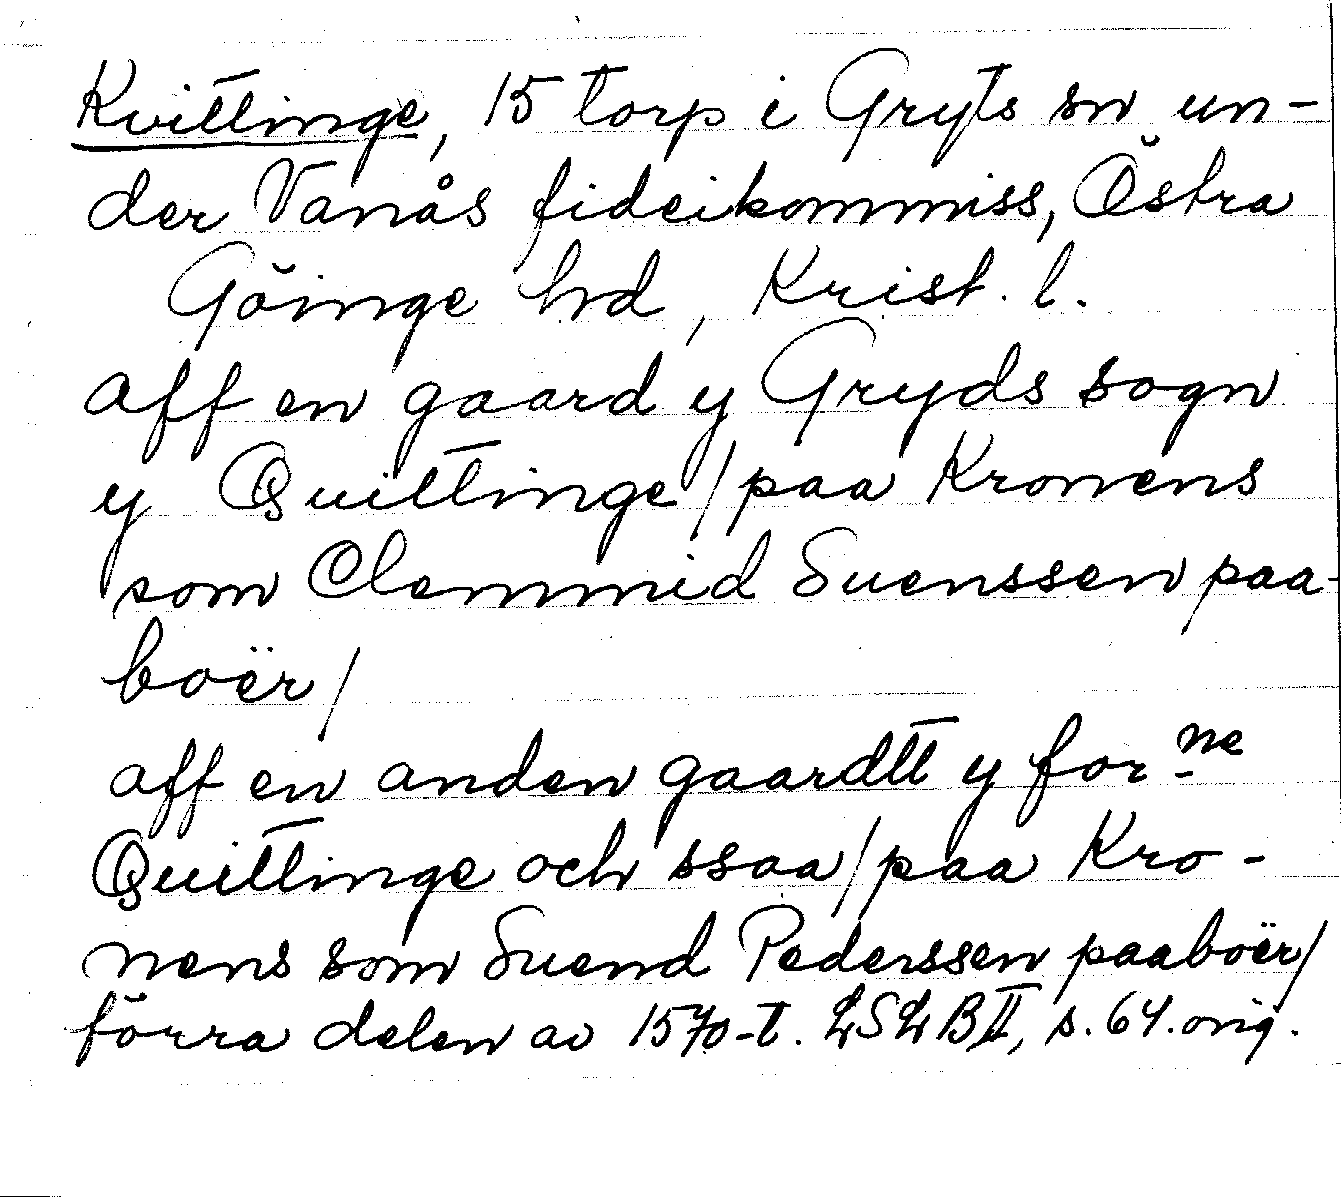 Kvittinge, 15 torp i Gryts sn un-
der Vanås fideikommiss, Östra
Göinge hd, Krist. l.
aff en gaard y Gryds sogn
y Quittinge / paa Kronens
som Clemmid Suenssen paa-
boër /
aff en anden gaardtt y for-ne
Quittinge och ssaa / paa Kro-
nens som Suend Pederssen paaboër /
förra delen av 1570-t. LSLB II, s. 64. orig.